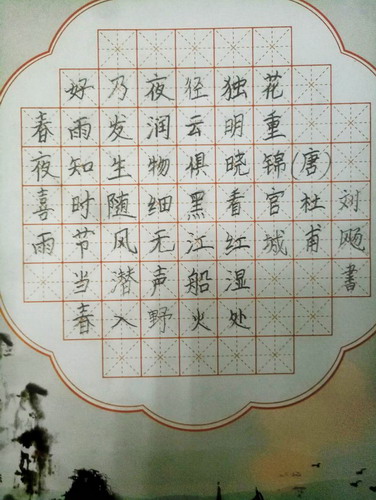 春夜喜雨
好雨知时节当春
乃发生随风潜入
夜润物细无声野
径云俱黑江船火
独明晓看红湿处
花重锦官城
(唐)杜甫
刘飏書